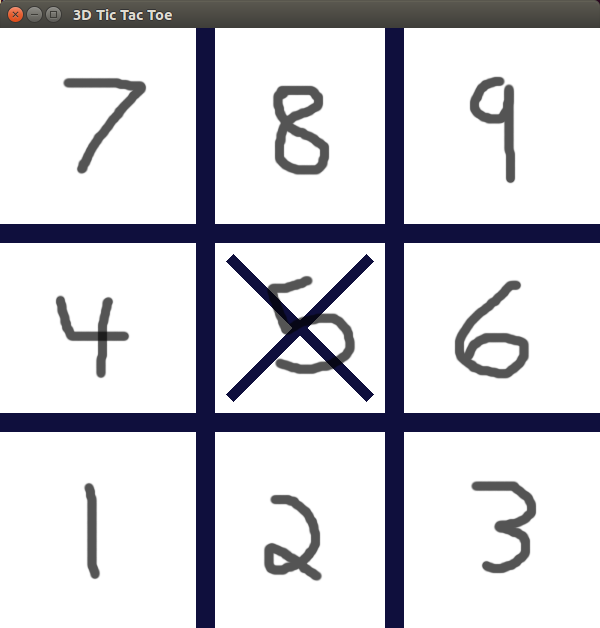 3D Tic Tac Toe
7 8 9
4 5 6
1 2 3